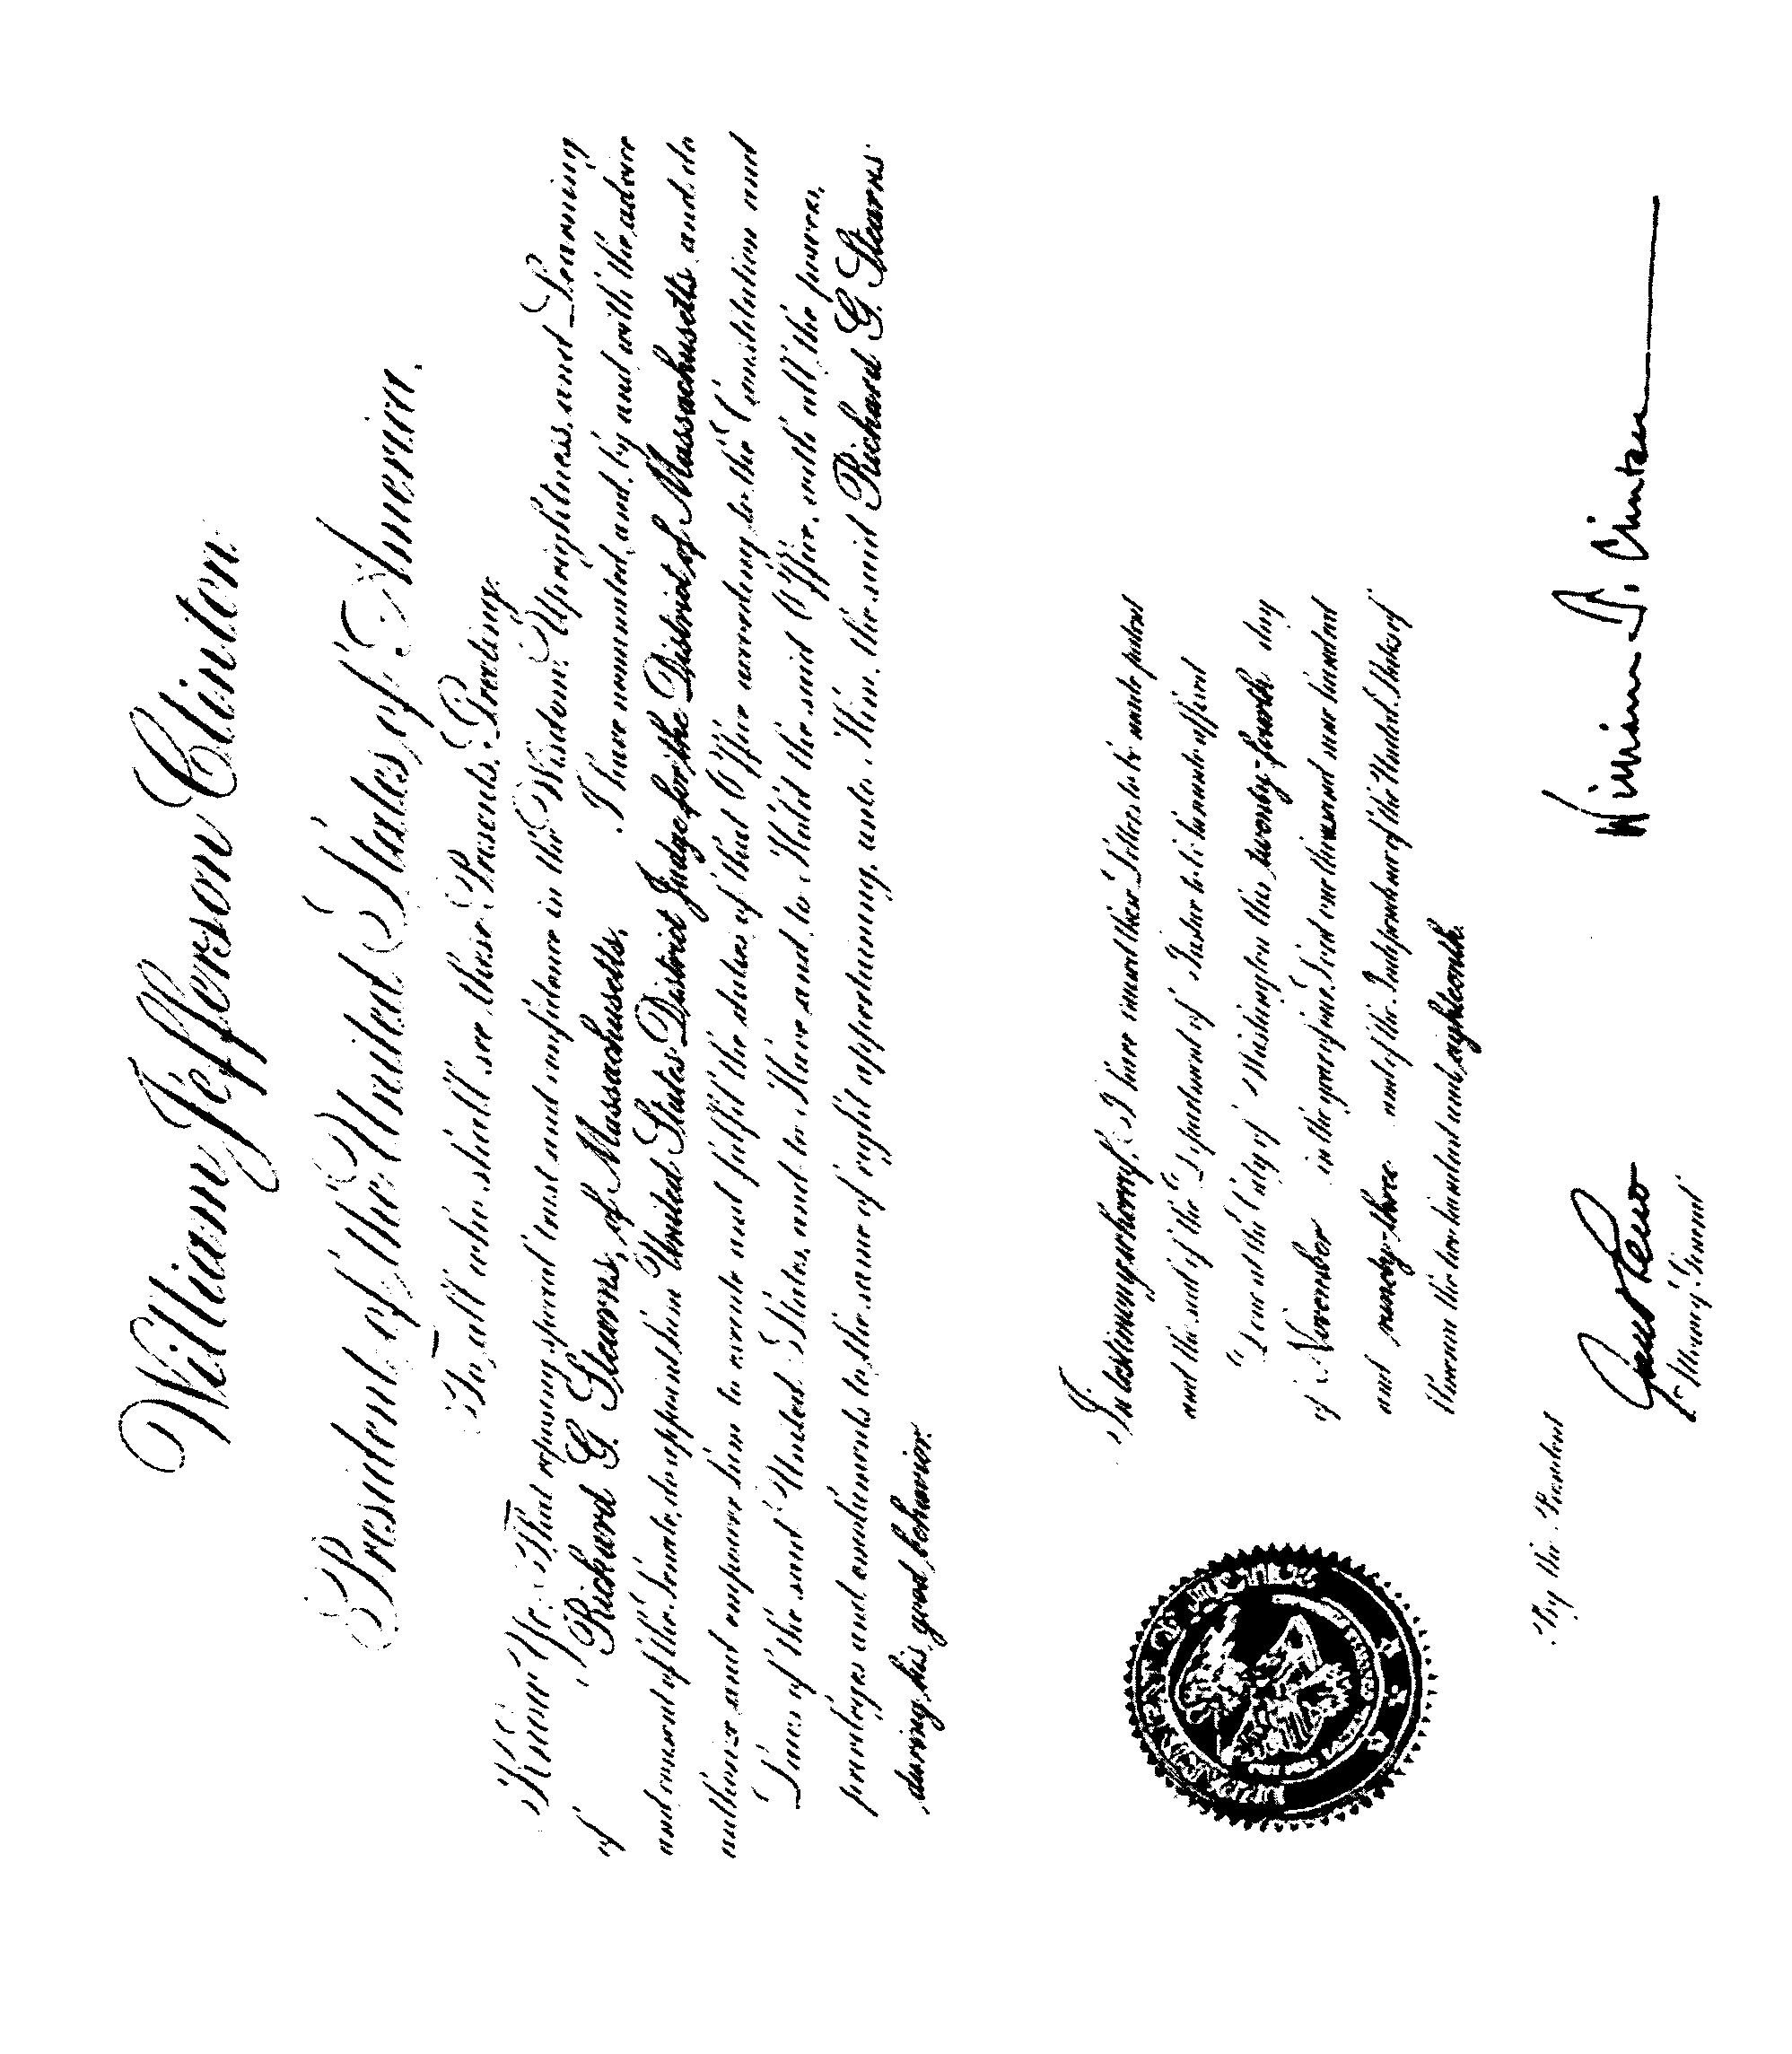 William Jefferson Clinton
President of the United States of America.
To all who shall see these Presents, Greeting:
Know Ye; That reposing special trust and confidence in the Wisdom, Uprightness, and Learning
of Richard G. Stearns, of Massachusetts, I have nominated, and, by and with the advice
and consent of the Senate, do appoint him United States District Judge for the District of Massachusetts and do
authorize and empower him to execute and fulfil the duties of that Office according to the Constitution and
Laws of the said United States, and to Have and to Hold the said Office, with all the powers,
privileges and emoluments to the same of right appertaining, unto Him, the said Richard G. Stearns
during his good behavior.
In testimony whereof, I have caused these Letters to be made patent
and the seal of the Department of Justice to be hereunto affixed
Done at the City of Washington this twenty-fourth day
of November in the year of our Lord one thousand nine hundred
and ninety-three and of the Independence of the United States of
America the two hundred and eighteenth.
DEPARTMENT OF JUSTICE
By the President
William J. Clinton
Janet Reno
Attorney General